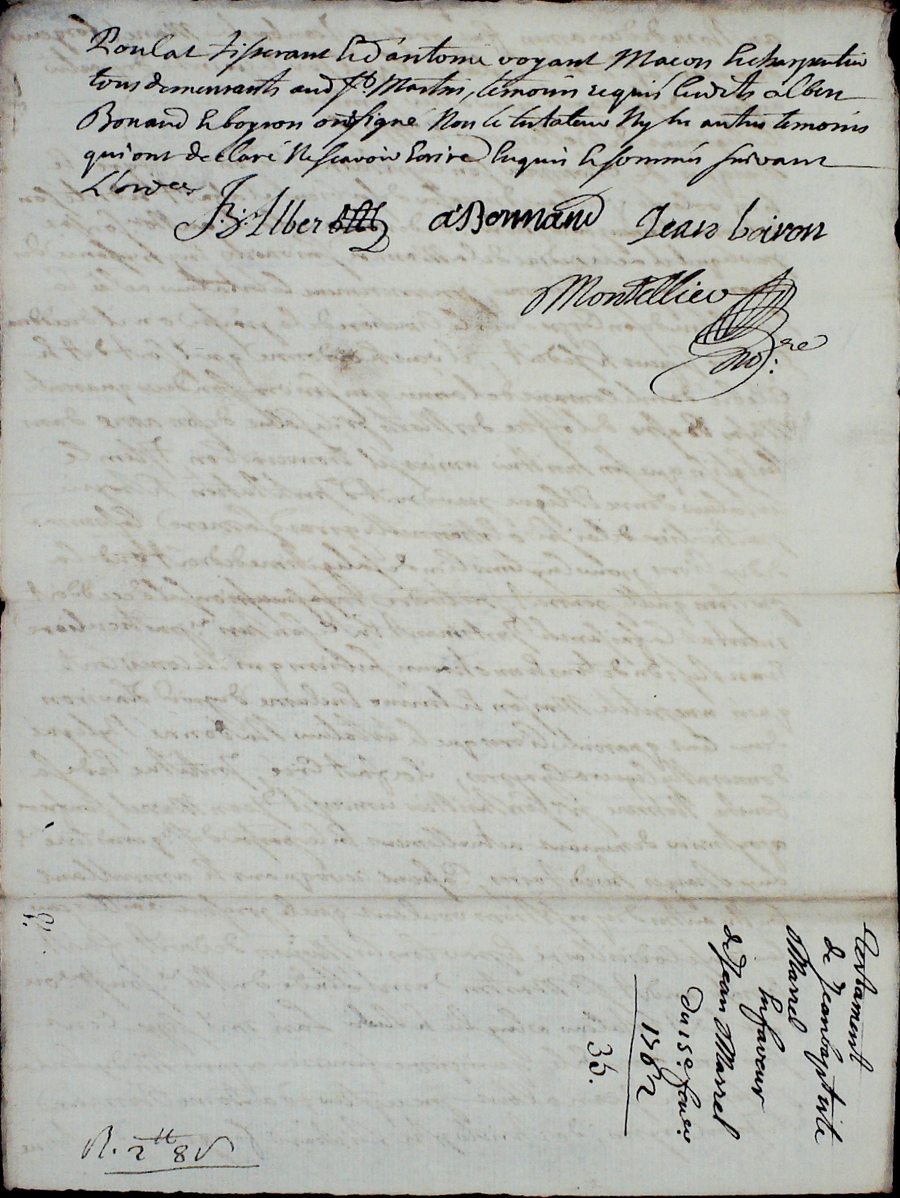 Poulat tisserant et d'antoine voyant Macon et charpentier
tous demeurants aud St Martin, temoins requis lesdits alber
Bonand et boyron ont signé Non le testateur Ny les autres temoins
qui ont declaré Ne scavoir Ecrire Enquis et sommés suivant
L'ordce
J B Albert a Bonnand Jean boiron
Montellieu
nore
Testament
de Jeanbaptiste
Marrel
En faveur
de Jean Marrel
Du 15e
1762
35.
R. 2tt 8s